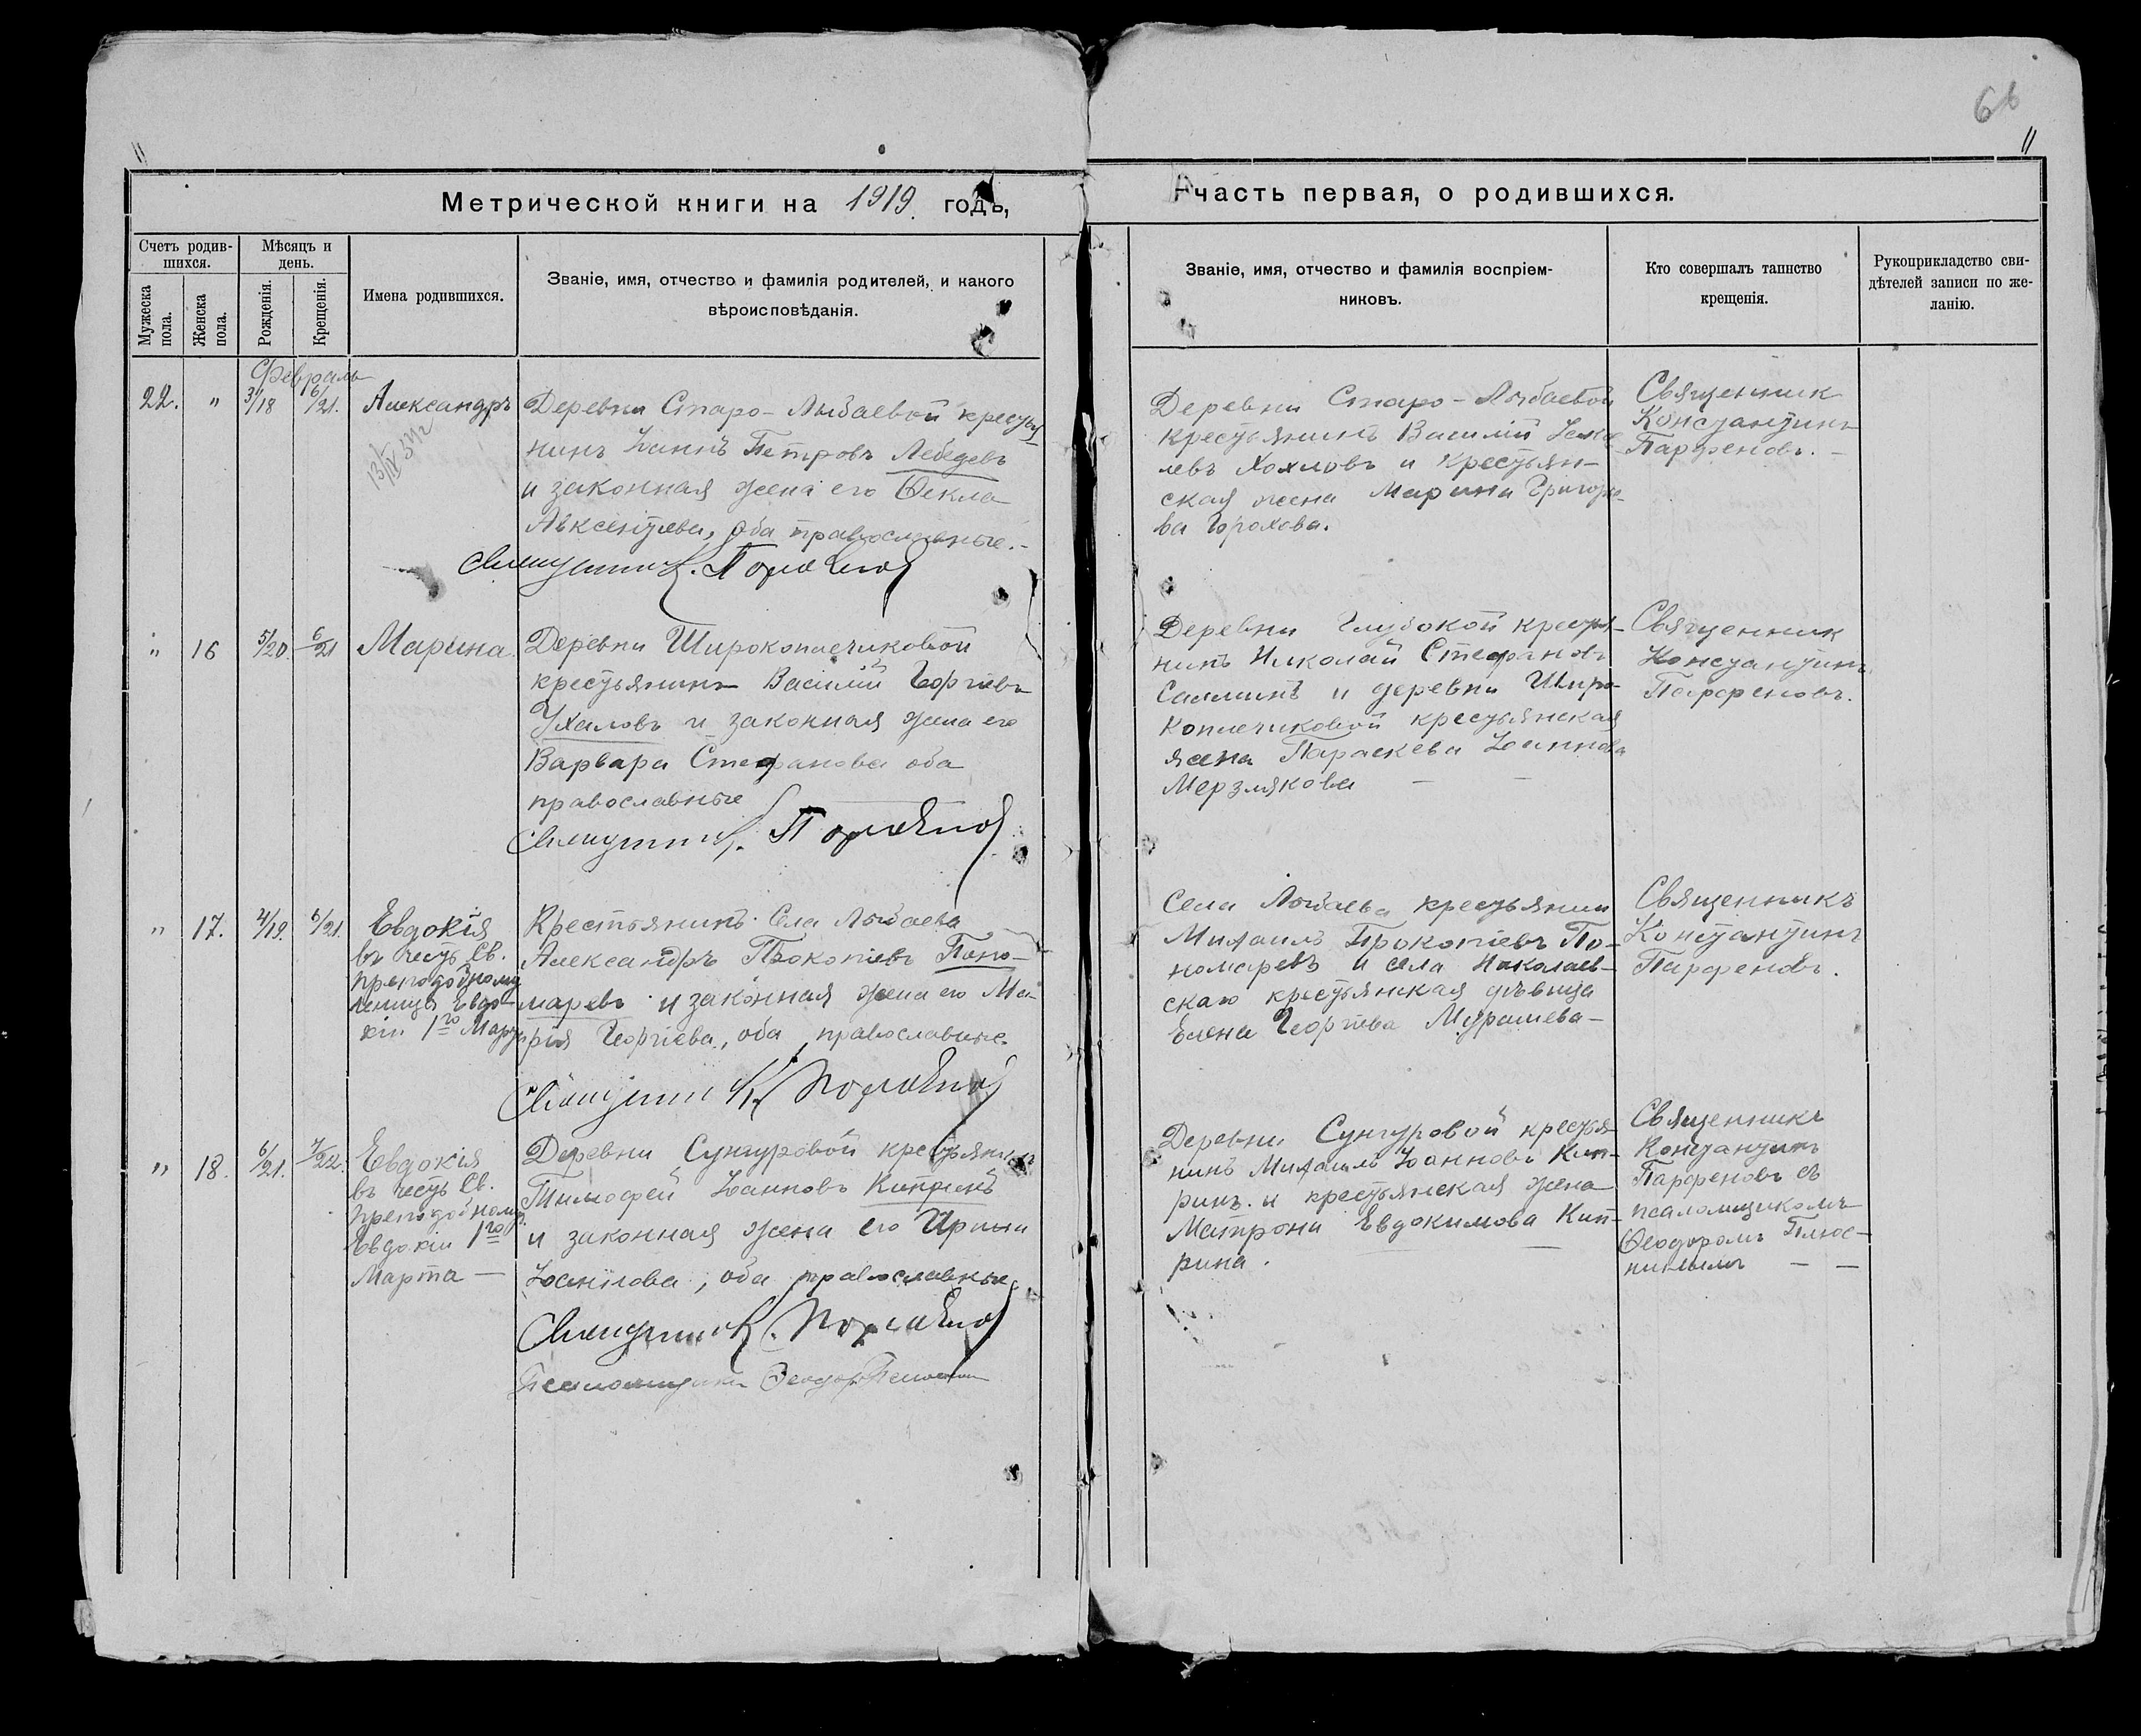 66
Метрической книги на 1919. годъ,
часть первая, о родившихся.
Счетъ родив-
шихся.
Мужеска
пола.
Женска
пола.
Мѣсяцъ и
день.
Рожденія.
Крещенія.
Имена родившихся.
Званіе, имя, отчество и фамилія родителей, и какого
вѣроисповѣданія.
Званіе, имя, отчество и фамилія воспріем-
никовъ.
Кто совершалъ таинство
крещенія.
Рукоприкладство сви-
дѣтелей записи по же-
ланію.
Февраль
22. " 3/18 6/21. Александръ
Деревни Старо-Лыбаевой кресть
нинъ Іоаннъ Петровъ Лебедевъ
и законная жена его Ѳекла
Авксентьева, оба православные.-
Священник К. Парфенов
Деревни Старо-Лыбаевой
крестьянинъ Василій
левъ Хохловъ и крестьян-
ская жена Марина Григорье-
ва Горохова.
Священник
Константинъ
Парфеновъ. -
" 16 5/20 6/21 Марина.
Деревни Широкоплечиковой
крестьянинъ Василій Георгіевъ
Ухаловъ и законная жена его
Варвара Стефанова оба
православные
Священник К. Парфенов
Деревни Глубокой крестья-
нинъ Николай Стефановъ
и деревни Широ-
коплечиковой крестьянская
жена Параскева Іоаннова
Мерзлякова - -
Священник
Константинъ
Парфеновъ.
" 17. 4/19. 6/21. Евдокія
въ честь св.
преподобному
ченицы Евдо-
кіи 1го Март
Крестьянинъ Села Лыбаева
Александръ Прокопіевъ Поно-
маревъ и законная жена его Ма-
рія Георгіева, оба православные.
Священник К. Парфенов
Села Лыбаева крестьянин
Михаилъ Прокопіевъ По-
номаревъ и села Николаев-
скаго крестьянская дѣвица
Елена Георгіева Мурашева-
Священникъ
Константинъ
Парфеновъ.
" 18. 6/21. 7/22. Евдокія
въ честь св.
преподобному.
Евдокіи 1го
Марта -
Деревни Сунгуровой крестьянинъ
Тимофей Іоанновъ Кипринъ
и законная жена его Ирина
оба православные.
Священник К. Парфенов
Псаломщик Ѳеодор
Деревни Сунгуровой крестья-
нинъ Михаилъ Іоанновъ Кип-
ринъ и крестьянская жена
Матрона Евдокимова Кип-
рина.
Священникъ
Константинъ
Парфеновъ съ
псаломщикомъ
Ѳеодоромъ Плюс-
нинымъ - -